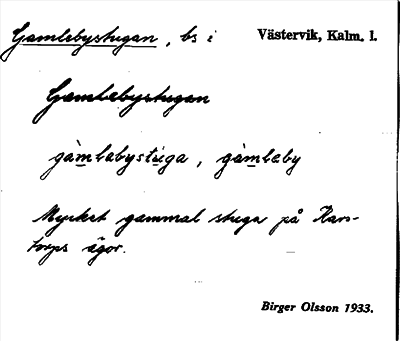 Gamlebystugan, bs i Västervik, Kalm. l.
Gamlebystugan
gàmlabystuga, gàmleby
Mycket gammal stuga på Kars-
torps ägor.
Birger Olsson 1933.